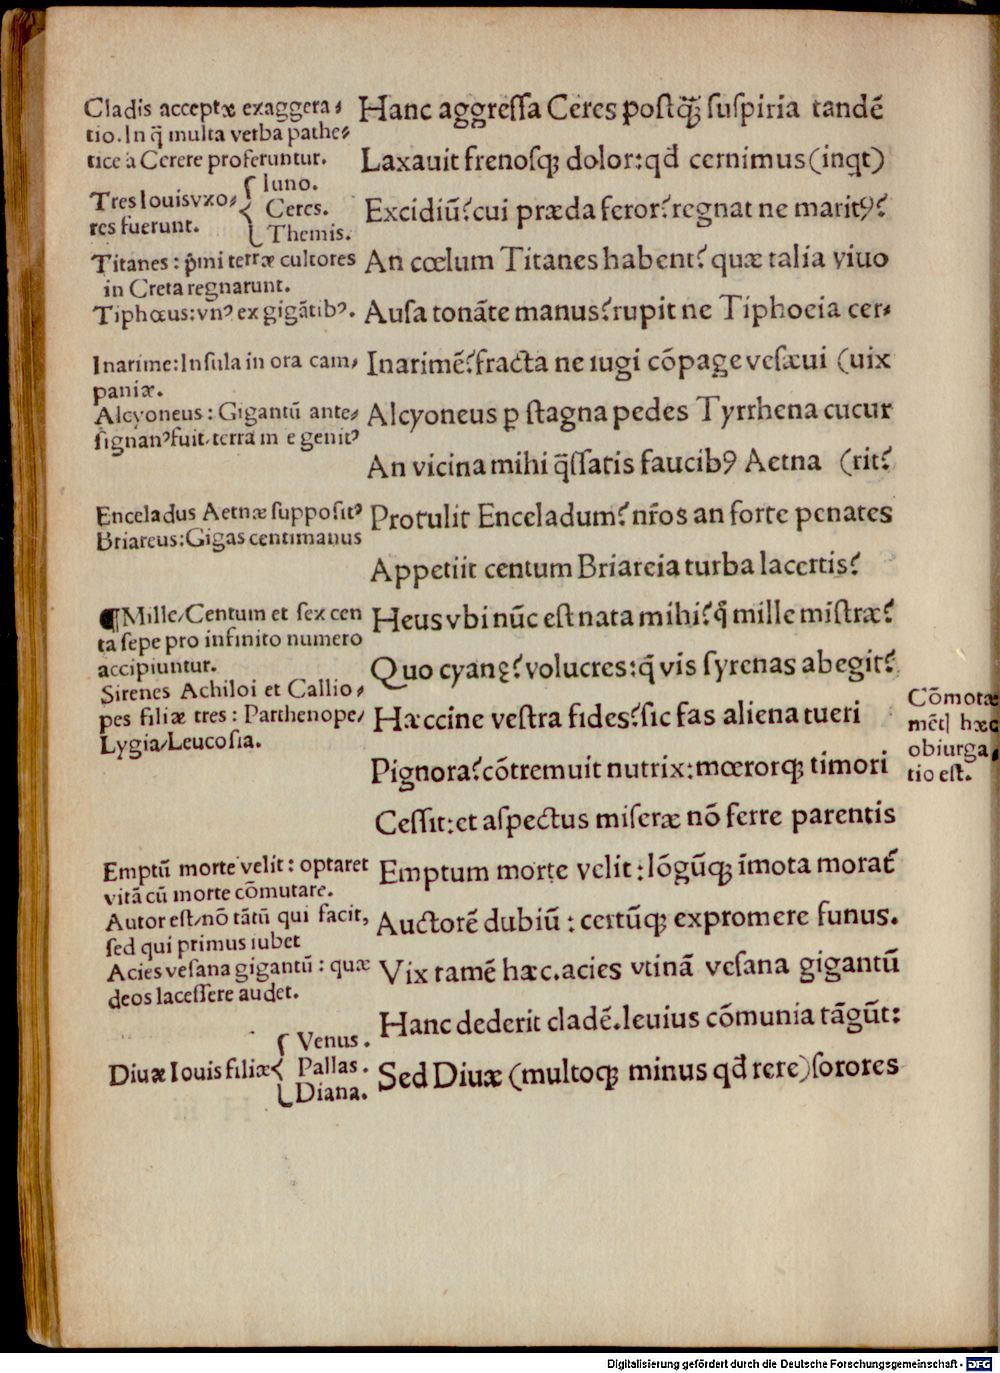 Cladis acceptæ exaggera⸗
tio. In q̄ multa verba pathe⸗
tice a Cerere proferuntur.
Tres Iouis vxo⸗
res fuerunt.
Iuno.
Ceres.
Themis.
Titanes : p̄mi terræ cultores
in Creta regnarunt.
Tiphœus: vnꝰ ex gigātibꝰ.
Inarime: Insula in ora cam⸗
paniæ.
Alcyoneus : Gigantū ante⸗
signanꝰ fuit, terra in e genitꝰ
Enceladus Aetnæ suppositꝰ
Briareus: Gigas centimanus
¶ Mille/Centum et sex cen
ta sepe pro infinito numero
accipiuntur.
Sirenes Achiloi et Callio⸗
pes filiæ tres : Parthenope/
Lygia/Leucosia.
Emptū morte velit : optaret
vitā cū morte cōmutare.
Autor est/nō tātū qui facit,
sed qui primus iubet
Acies vesana gigantū : quæ
deos lacessere audet.
Diuæ Iouis filiæ
Venus.
Pallas.
Diana.
Hanc aggreſſa Ceres poſtꝙ̄ ſuſpiria tandē
Laxauit frenoſq; dolor: qd̄ cernimus (inqt)
Excidiū? cui præda feror? regnat ne maritꝰ?
An cœlum Titanes habent? quæ talia viuo
Auſa tonāte manus? rupit ne Tiphoeia cer⸗
Inarimē? fracta ne iugi cōpage veſæui (uix
Alcyoneus ꝑ ſtagna pedes Tyrrhena cucur
An vicina mihi q̄ſſatis faucibꝰ Aetna (rit?
Protulit Enceladum? nr̄os an forte penates
Appetiit centum Briareia turba lacertis?
Heus vbi nūc eſt nata mihi? q̄ mille miſtræ?
Quo cyanę? volucres: q̄ vis ſyrenas abegit?
Hæccine veſtra fides? ſic fas aliena tueri
Pignora? cōtremuit nutrix: mœrorq; timori
Ceſſit: et aſpectus miſeræ nō ferre parentis
Emptum morte velit : lōgūq; īmota morat̄
Auctorē dubiū : certūq; expromere funus.
Vix tamē hæc. acies vtinā veſana gigantū
Hanc dederit cladē. leuius cōmunia tāgūt:
Sed Diuæ (multoq; minus qd̄ rere) ſorores
Cōmotæ
mēt] hæc
obiurga⸗
tio eſt.
Digitalisierung gefördert durch die Deutsche Forschungsgemeinschaft - DFG